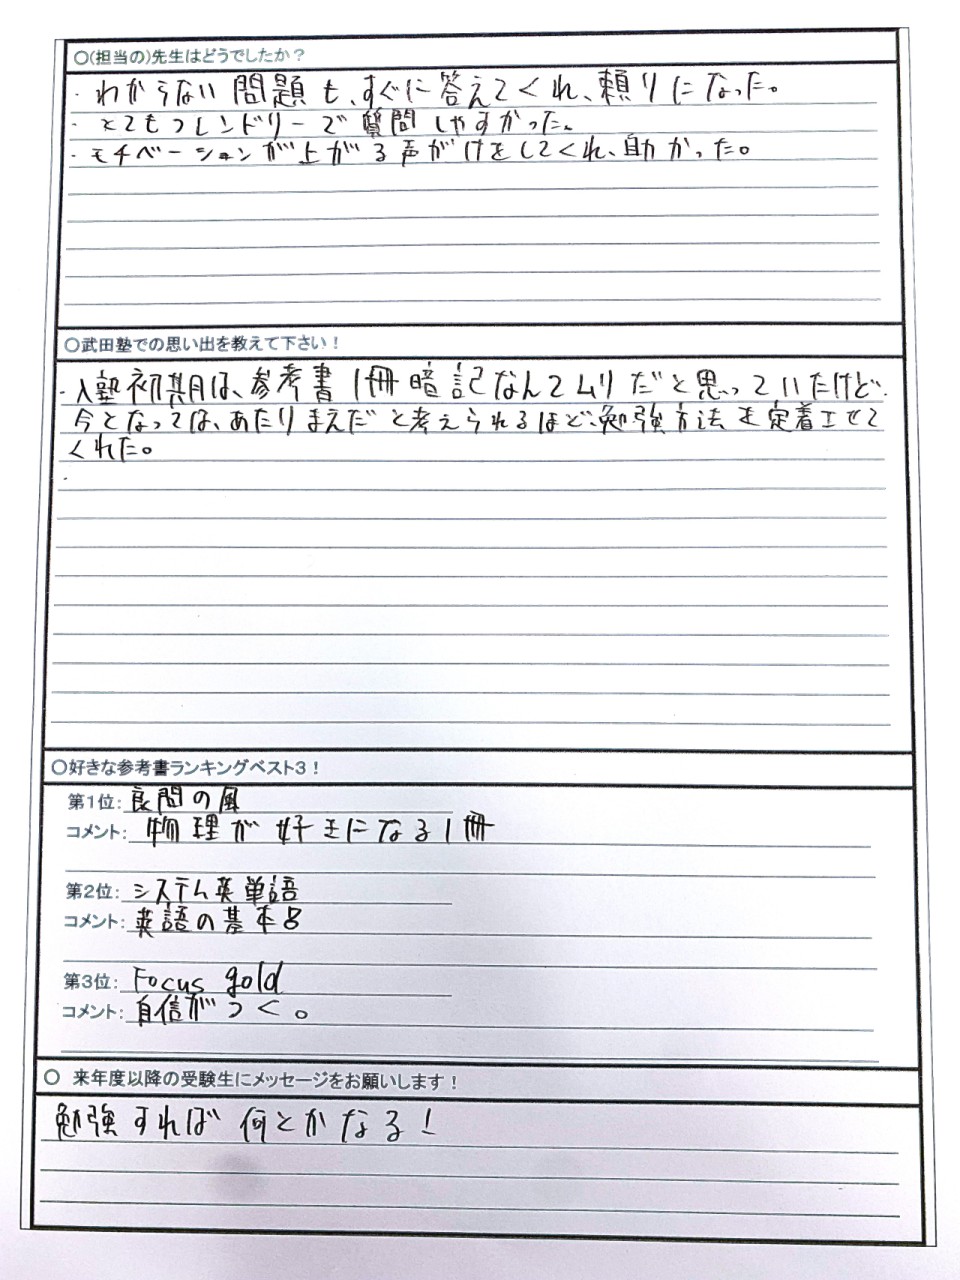 〇(担当の)先生はどうでしたか？
・わからない問題も、すぐに答えてくれ、頼りになった。
・とてもフレンドリーで質問しやすかった。
・モチベーションが上がる声がけをしてくれ、助かった。
〇武田塾での思い出を教えて下さい！
・入塾初期は、参考書1冊暗記なんてムリだと思っていたけど、
今となっては、あたりまえだと考えられるほど、勉強方法を定着させて
くれた。
・
〇好きな参考書ランキングベスト3！
第1位: 良問の風
コメント: 物理が好きになる1冊
第2位: システム英単語
コメント: 英語の基本
第3位: Focus gold
コメント: 自信がつく。
〇 来年度以降の受験生にメッセージをお願いします！
勉強すれば何とかなる！